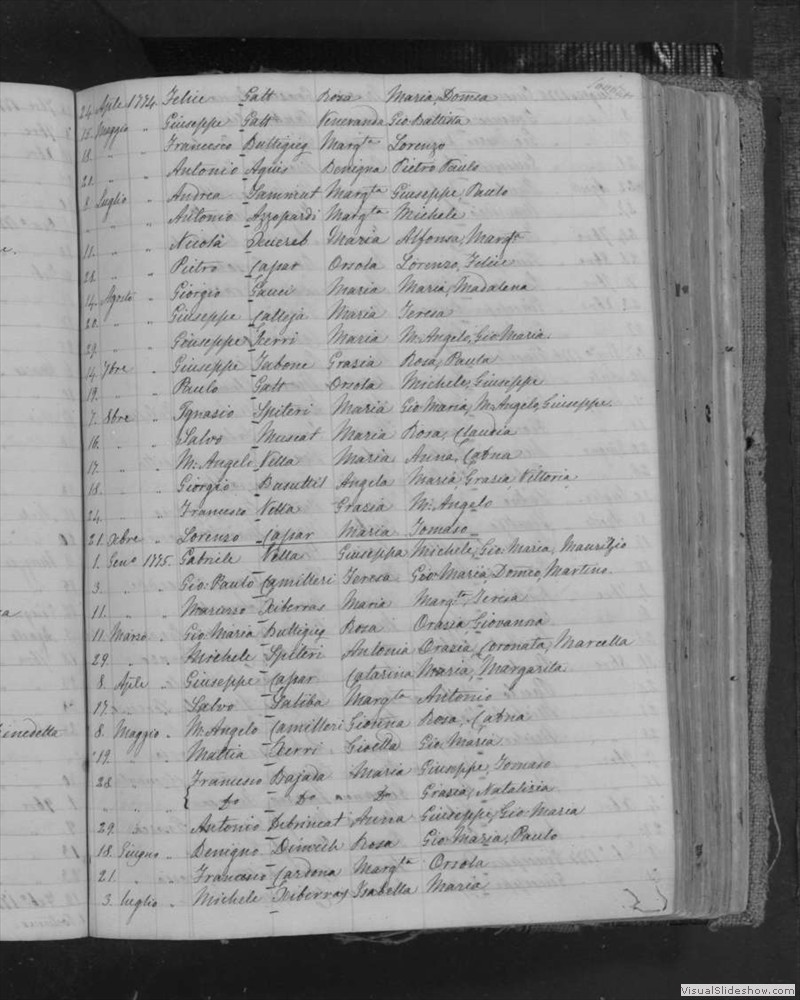 24. Aple 1774. Felice Gatt Rosa Maria, Domca
15. Maggio " Giuseppe Gatt Veneranda Gio Battista
18. " " Francesco Buttigieg Margta Lorenzo
20. " " Antonio Agius Benigna Pietro Paulo
8. Luglio " Andrea Sammut Margta Giuseppe, Paulo
" " " Antonio Azzopardi Margta Michele
11. " " Nicola Maria Alfonsa, Margta
28. " " Pietro Capar Orsola Lorenzo, Felice
14. Agosto " Giorgio Gauci Maria Maria, Madalena
20. " " Giuseppe Calleja Maria Teresa
29. " " Giuseppe Xerri Maria M. Angelo, Gio Maria.
14. 7bre " Giuseppe Tabone Grazia Rosa, Paula
19. " " Paulo Gatt Orsola Michele, Giuseppe
7. 8bre " Ignazio Spiteri Maria Gio Maria, M. Angelo, Giuseppe.
16. " " Salvo Muscat Maria Rosa, Claudia
17. " " M. Angelo Vella Maria Anna, Catna
18. " " Giorgio Busuttil Angela Maria, Grazia Vittoria
24. " " Francesco Vella Grazia M. Angelo
21. Xbre " Lorenzo Capar Maria Tomaso
1. Geno 1775. Gabriele Vella Giuseppa Michele, Gio Maria, Maurizio
3. " " Gio: Paulo Camilleri Teresa Gio Maria, Domco, Martino
11. " " Xiberras Maria Margta, Teresa
11. Marzo " Gio Maria Buttigieg Rosa Orazia, Giovanna
29. " Michele Spiteri Antonia Orazia, Coronata, Marcella
8. Aple " Giuseppe Capar Catarina Maria, Margarita
17. " " Salvo Saliba Margta Antonio
8. Maggio " M. Angelo Camilleri Gionna Rosa, Catna
19. " Mattia Xerri Gioella Gio Maria
28 Francesco Bajada Maria Giuseppe, Tomaso
{ Do Do " Do Grazia, Natalizia
29. " Antonio Debrincat Anna Giuseppe, Gio Maria
18. Giugno " Benigno Dimech Rosa Gio Maria, Paulo
21. " Francesco Cardona Margta Orsola
3. luglio " Michele Xiberras Isabella Maria
VisualSlideshow.com